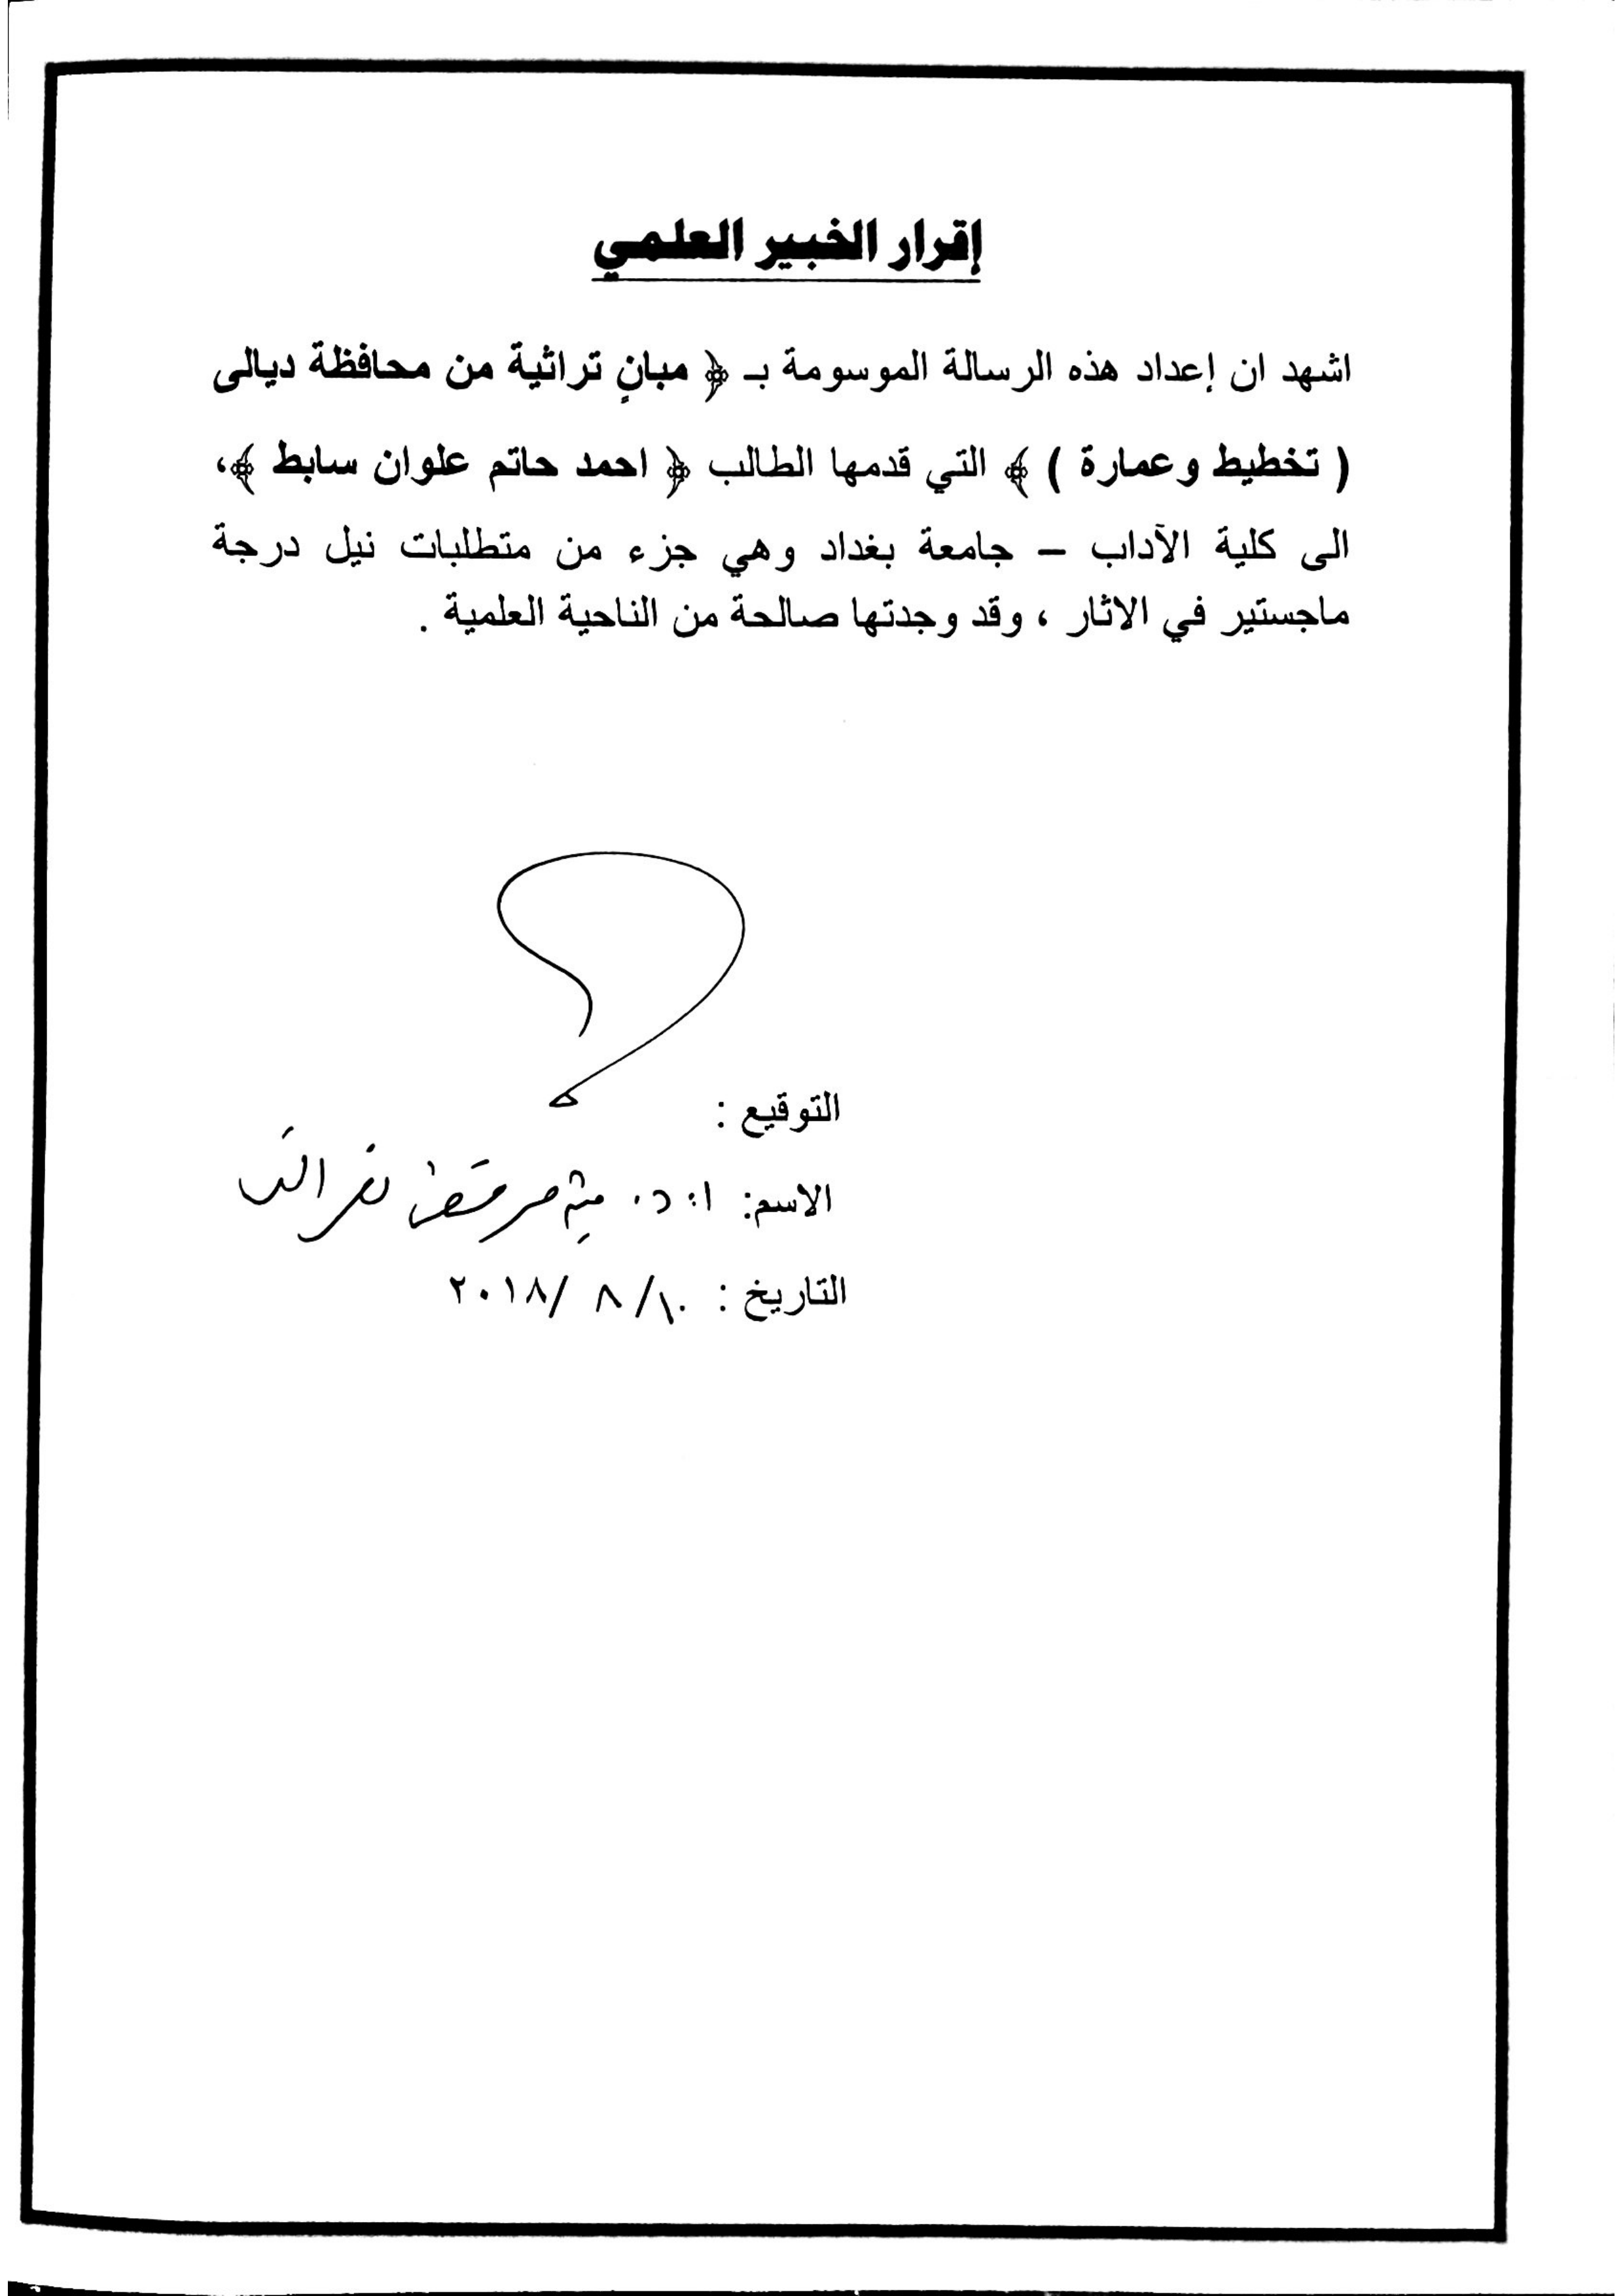 إقرار الخبير العلمي
اشهد ان إعداد هذه الرسالة الموسومة بـ ﴿ مبانٍ تراثية من محافظة ديالى
( تخطيط وعمارة ) ﴾ التي قدمها الطالب ﴿ احمد حاتم علوان سابط ﴾،
الى كلية الآداب – جامعة بغداد وهي جزء من متطلبات نيل درجة
ماجستير في الاثار ، وقد وجدتها صالحة من الناحية العلمية .
التوقيع :
الاسم: ا. د.
التاريخ : ١٠/ ٨ /٢٠١٨